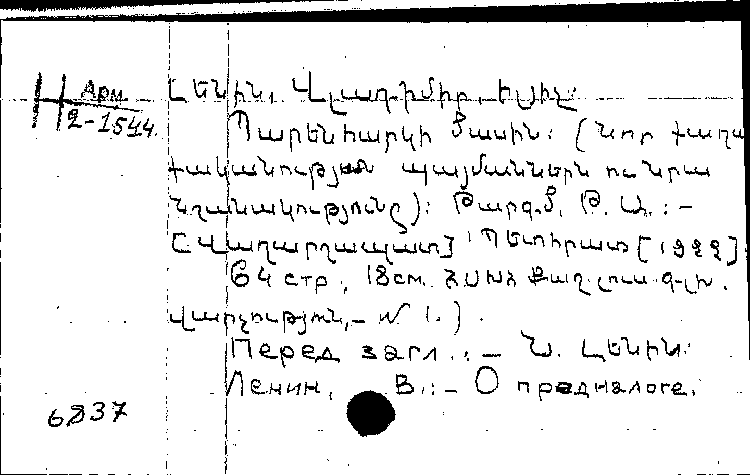 Арм
2-1544.
Լենին, Վլադիմիր, Իլյիչ:
Պարենհարկի մասին: (Նոր քաղա
քականության պայմաններն ու նրա
նշանակությունը): Թարգմ. Թ. Ա.:-
[Վաղարշապատ] Պետհրատ [1922]
64 стр., 18см. ՀՍԽՀ Քաղ. լուս. գլխ.
վարչություն,- N 1.).
Перед загл.:- Ն. Լենին:
Ленин, В.:- О продналоге.
6837